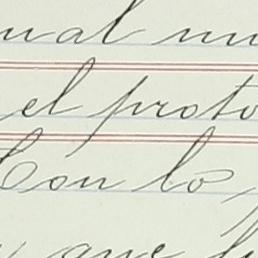 ual
el proto
Con lo
que